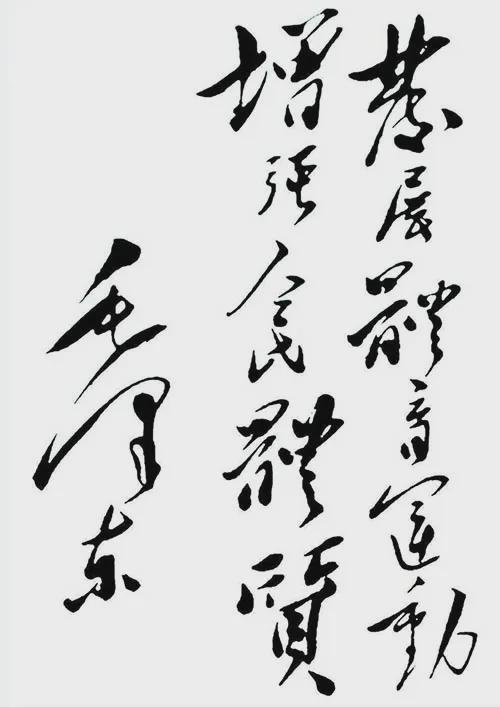 發展體育運動
增强人民體質
毛澤东